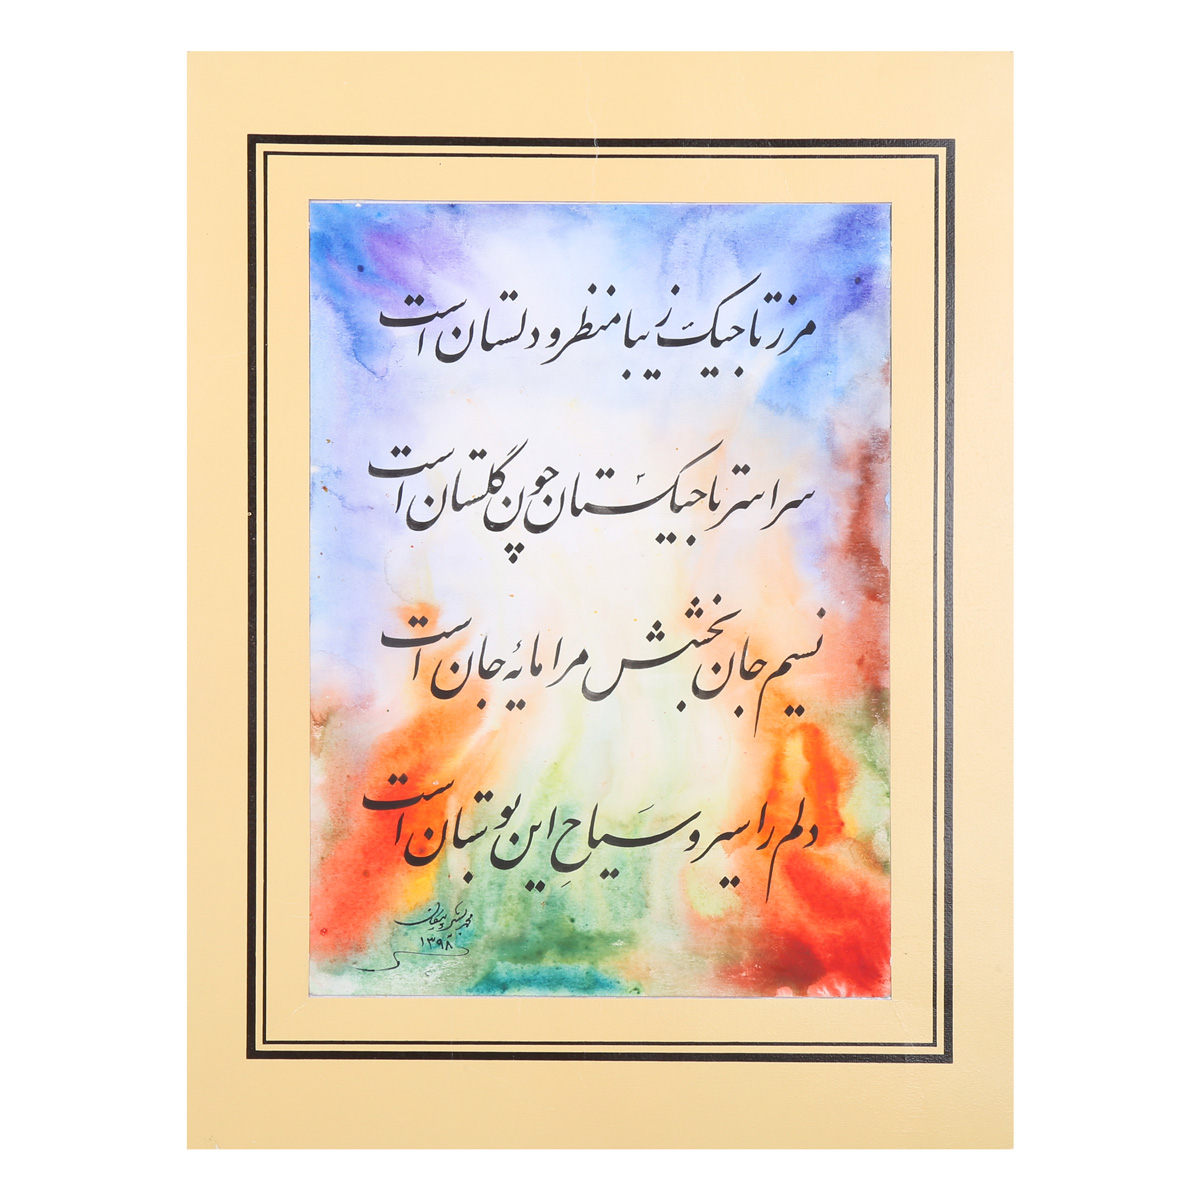 مرز تاجیک زیبا منظر و دلستان است
سراسر تاجیکستان چون گلستان است
نسیم جان بخشش مرا مایۀ جان است
دلم را سیر و سیَاحِ این بوستان است
محمد
۱۳۹۸